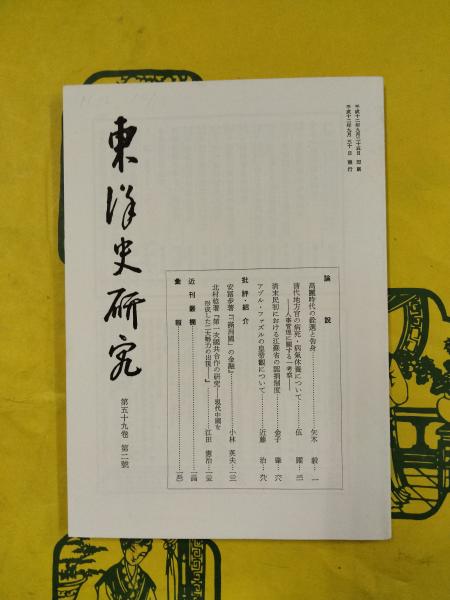 平成十二年九月二十五日 印刷
平成十二年九月三十日 發行
東洋史研究
第五十九卷 第二號
論說
高麗時代の銓選と告身……矢木 毅…一
清代地方官の病死・病氣休養について……伍 躍…三
——人事管理に關する一考察——
清末民初における江蘇省の認捐制度……金子 肇…六
アブル・ファズルの皇帝觀について……近藤 治…九
批評・紹介
安冨步著『「滿洲國」の金融』……小林 英夫…三
北村稔著『第一次國共合作の研究——現代中國を
形成した二大勢力の出現——』……江田 憲治…三
近刊叢欄
彙報